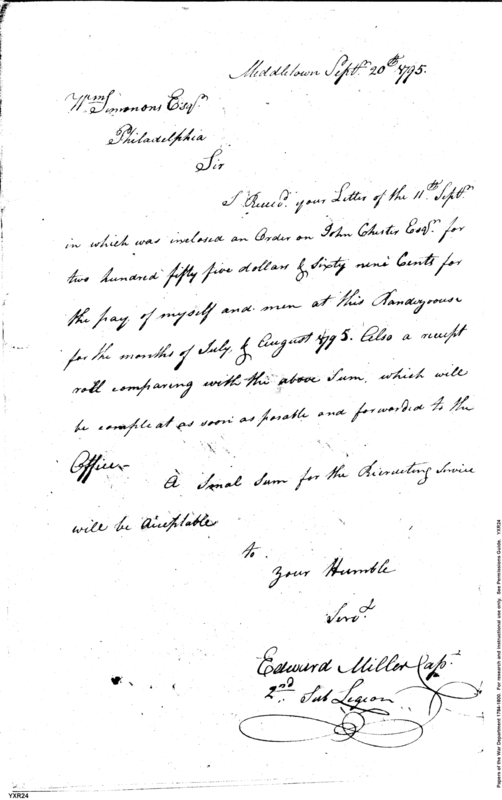 Middletown Septr. 20th. 1795.
Wm. Simmons Esqr.
Philadelphia
Sir
I Receid. your Letter of the 11th. Septr.
in which was inclosed an Order on John Chester Esqr. for
two hundred fifty five dollars & Sixty nine Cents for
the pay of myself and men at this Randezvouse
for the months of July, & August 1795. Also a receipt
roll comparing with the above Sum, which will
be compleat as soon as posable and forwarded to the
Office
A Smal Sum for the Recruiting Service
will be acceptable
to
your Humble
Servt.
Edward Miller Capt.
2nd. Sub Legion
Papers of the War Department 1784-1800. For research and instructional use only. See Permissions Guide. YXR24
YXR24